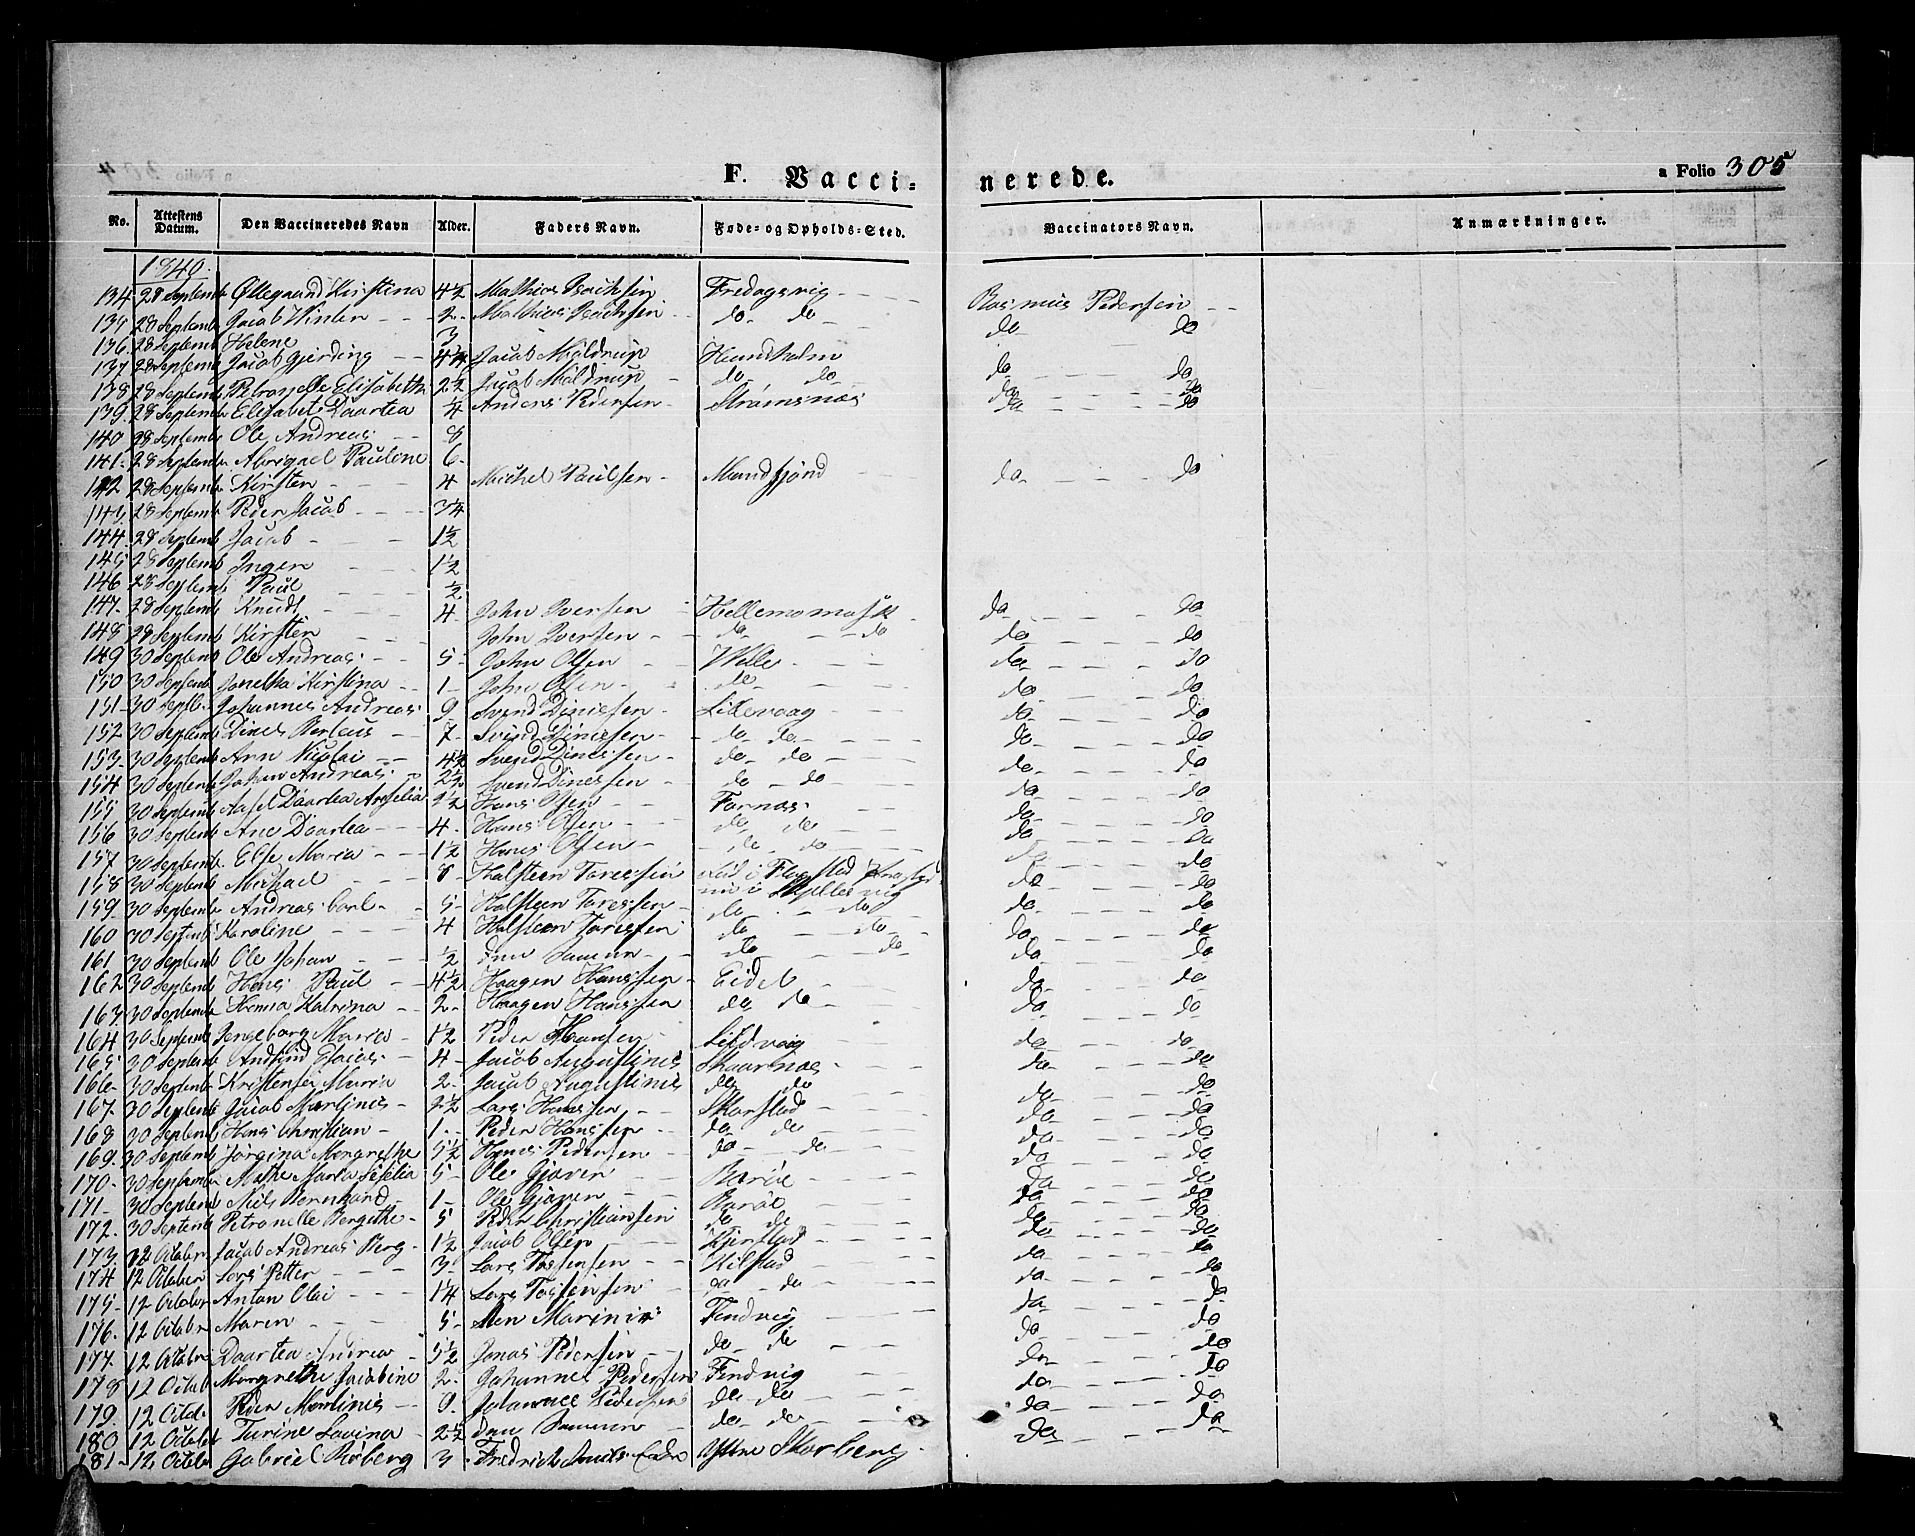 F. Vacci- nerede. a Folio 305
No. Attestens Datum. Den Vaccineredes Navn Alder. Faders Navn. Føde- og Opholds-Sted. Vaccinators Navn. Anmærkninger.
1840.
134 28 Septemb Øllegaard Kirstina 4½ Mathias Fredagsvig Rasmus Pedersen
135 28 Septemb Jacob Winter 2 Mathias do do do do
136 28 Septemb Helene 3
137 28 Septemb Jacob Gjerding 4¼ Jacob Møldrup Hundholm do do
138 28 Septemb Petronelle Elisabeth 2½ Jacob Møldrup do do do do
139 28 Septemb Elisabet Daartea ¼ Anders Pedersen Strømsnæs do do
140 28 Septemb Ole Andreas 8
141 28 Septemb Abrigael Pauline 6
142 28 Septemb Kirsten 4 Michel Paulsen Mandfjord do do
143 28 Septemb Peder Jacob 3¼
144 28 Septemb Jacob 1½
145 28 Septemb Inger 1½
146 28 Septemb Paul ½
147 28 Septemb Knudt 4 John Iversen Hellemomask do do
148 28 Septemb Kirsten John Iversen do do do do
149 30 Septemb Ole Andreas 5 John Olsen Welle do do
150 30 Septemb Kirstina 1 John Olsen do do do
151 30 Septb Johannes Andreas 9 Svend Dinesen Lillevaag do do
152 30 Septemb Dines 7 Svend Dinesen do do do do
153 30 Septemb Arn Nicolai 4½ Svend Dinessen do do do do
154 30 Septemb Johan Andreas 2½ Svend Dinessen do do do do
155 30 Septemb Daartea Amselia 9½ Hans Olsen Tornæs do do
156 30 Septemb Ane Daartea 4 Hans Olsen do do do do
157 30 Septemb Else Maria 1½ Hans Olsen do do do do
158 30 Septemb Michael 8 Halsteen Toressen i Flagstad do do
159 30 Septemb Andreas Carl 5 Halsteen Toressen do do do do
160 30 Septemb Karoline 4 Halsteen Toressen do do do do
161 30 Septemb Ole Johan ½ den Samme do do do do
162 30 Septemb Hans Paul 4½ Haagen Hanssen Eidet do do
163 30 Septemb Hanna Katrina 2 Haagen Hanssen do do do do
164 30 Septemb Ingeborg Maria 1½ Peder Hansen Lildvaag do do
165 30 Septemb 4 Jacob Augustinis Skaarnæs do do
166 30 Septemb Maria 2 Jacob Augustinis do do do do
167 30 Septemb Jacob Martinis 2½ Lars Hanssen Skarstad do do
168 30 Septemb Hans Christian 1 Peder Hanssen do do do do
169 30 Septemb Jørgina Margrethe 5½ Hans Pedersen do do do do
170 30 Septemb Mathe Maria Sesilia 5 Ole Gjæver Barøe do do
171 30 Septemb Nils Bernhard 1 Ole Gjæver Barøe do do
172 30 Septemb Petronelle Bergithe 5 Peder Christiansen do do do do
173 12 Octobr Jacob Andreas Berg 1½ Jacob Olsen Kjerstad do do
174 12 Octobr Lars Petter 3 Lars Tostensen Hilstad do do
175 12 Octobr Antan Olai 1¼ Lars Tostensen do do do do
176 12 Octobr Maren 5 Marinis Tindvig do do
177 12 Octobr Daartea Andrea 5½ Jonas Pedersen do do do do
178 12 Octob Margrethe Jacobine 2 Johannes Pedersen Tindvig do do
179 12 Octob Peder Martinis 9 Johannes Pedersen do do do do
180 12 Octob Turine Lovina 2½ den Samme do do do do
181 12 Octob Gabriel Røberg 3 Fredrick Yttre Skarberg